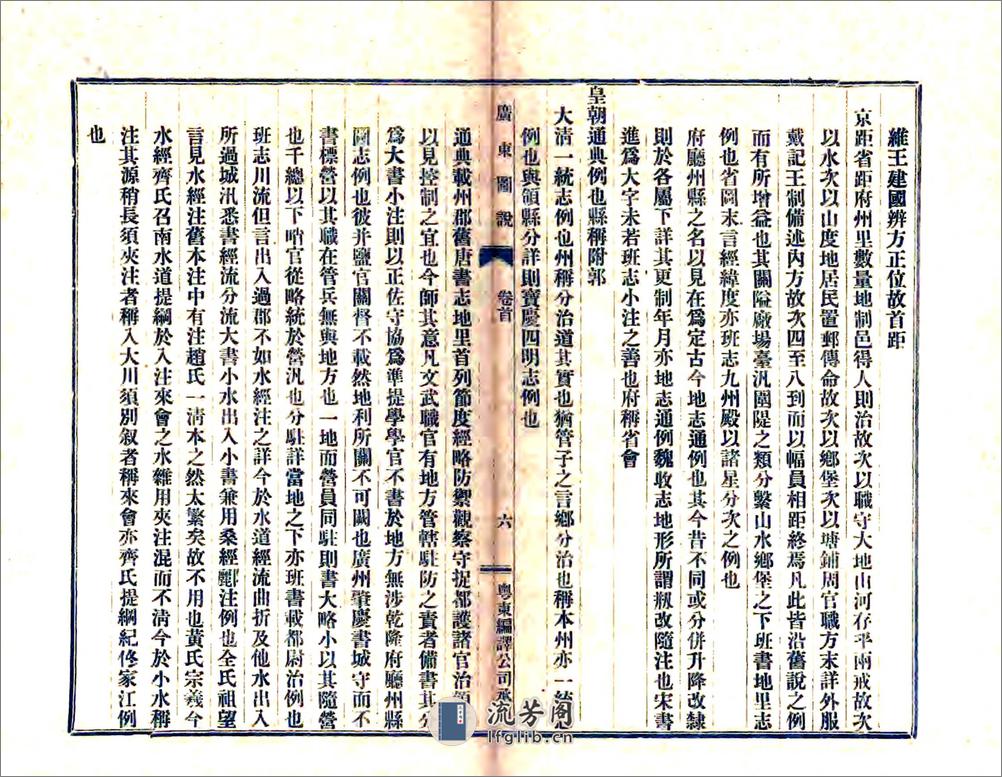 維王建國辨方正位故首距
京距省距府州里數量地制邑得人則治故次以職守大地山河存乎兩戒故次
以水次以山度地居民置郵傳命故次以鄉堡次以塘鋪周官職方末詳外服
戴記王制備述內方故次四至八到而以幅員相距終焉凡此皆沿舊說之例
而有所增益也其關隘廠場臺汛圍隄之類分繫山水鄉堡之下班書地里志
例也省圖末言經緯度亦班志九州殿以諸星分次之例也
府廳州縣之名以見在為定古今地志通例也其今昔不同或分併升降改隸
則於各屬下詳其更制年月亦地志通例魏收志地形所謂瓶改隨注也宋書
進為大字未若班志小注之善也府稱省會
皇朝通典例也縣稱附郭
大清一統志例也州稱分治道其實也猶管子之言鄉分治也稱本州亦一統志
例也與領縣分詳則寶慶四明志例也
廣東圖說
卷首
六
粵東編譯公司承
通典載州郡舊唐書志地里首列節度經略防禦觀察守捉都護諸官治領
以見控制之宜也今師其意凡文武職官有地方管轄駐防之責者備書其分
為大書小注則以正佐守協為準提學學官不書於地方無涉乾隆府廳州縣
圖志例也彼并鹽官關督不載然地利所關不可闕也廣州肇慶書城守而不
書標營以其職在管兵無與地方也一地而營員同駐則書大略小以其隨營
也千總以下哨官從略統於營汛也分駐詳當地之下亦班書載都尉治例也
班志川流但言出入過郡不如水經注之詳今於水道經流曲折及他水出入
所過城汛悉書經流分流大書小水出入小書兼用桑經酈注例也全氏祖望
言見水經注舊本注中有注趙氏一清本之然太繁矣故不用也黃氏宗羲今
水經齊氏召南水道提綱於入注來會之水雜用夾注混而不清今於小水稱
注其源稍長須夾注者稱入大川須別敘者稱來會亦齊氏提綱紀修家江例
也
流芳阁
lfglib.cn